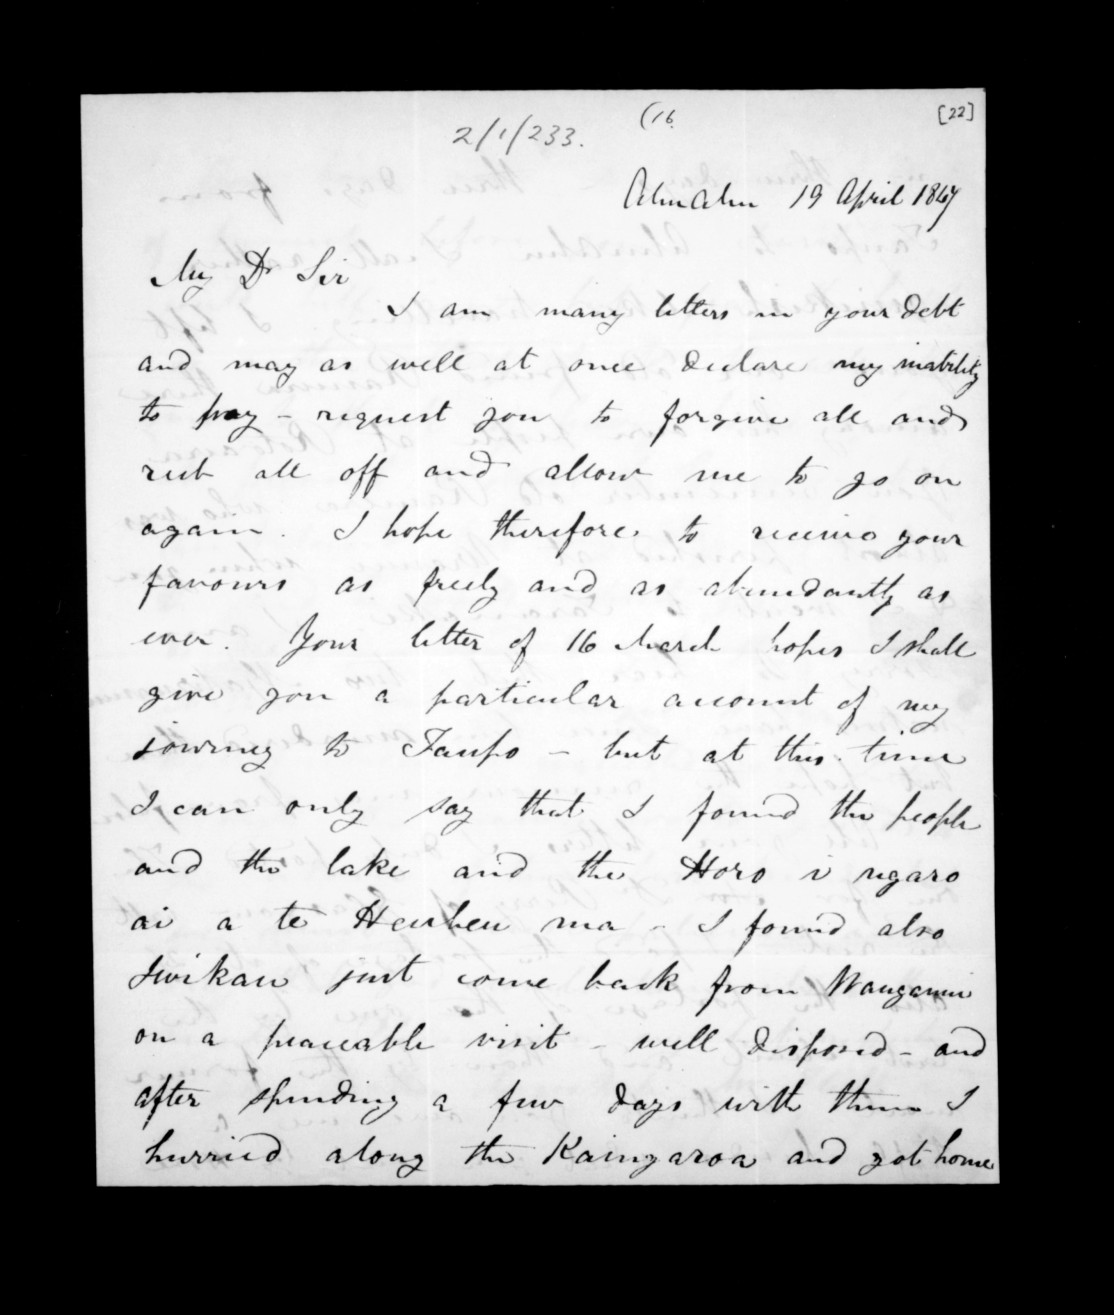 (16.
[22]
2/1/233.
Ahuahu 19 April 1847
My Dr Sir
I am many letters in your debt
and may as well at once declare my inability
to pay - request you to forgive all and
rub all off and allow me to go on
again. I hope therefore to receive your
favours as freely and as abundantly as
ever. Your letter of 16 March hopes I shall
give you a particular account of my
journey to Taupo - but at this time
I can only say that I found the people
and the lake and the Horo i ngaro
ai a te Heuheu ma - I found also
Iwikau just come back from Wanganui
on a peaceable visit - well disposed - and
after spending a few days with them I
hurried along the Kaingaroa and got home